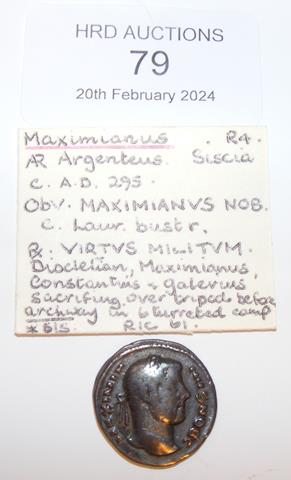 HRD AUCTIONS
79
20th February 2024
Maximianus. R4.
AR Argenteus. Siscia
C. A.D. 295.
Obv. MAXIMIANVS NOB.
C. Laur. bust r.
R. VIRTVS MILITVM.
Diocletian, Maximianus,
Constantius & Galerius
sacrificing over tripod before
archway in 6 turreted camp
*SIS. RIC 61.